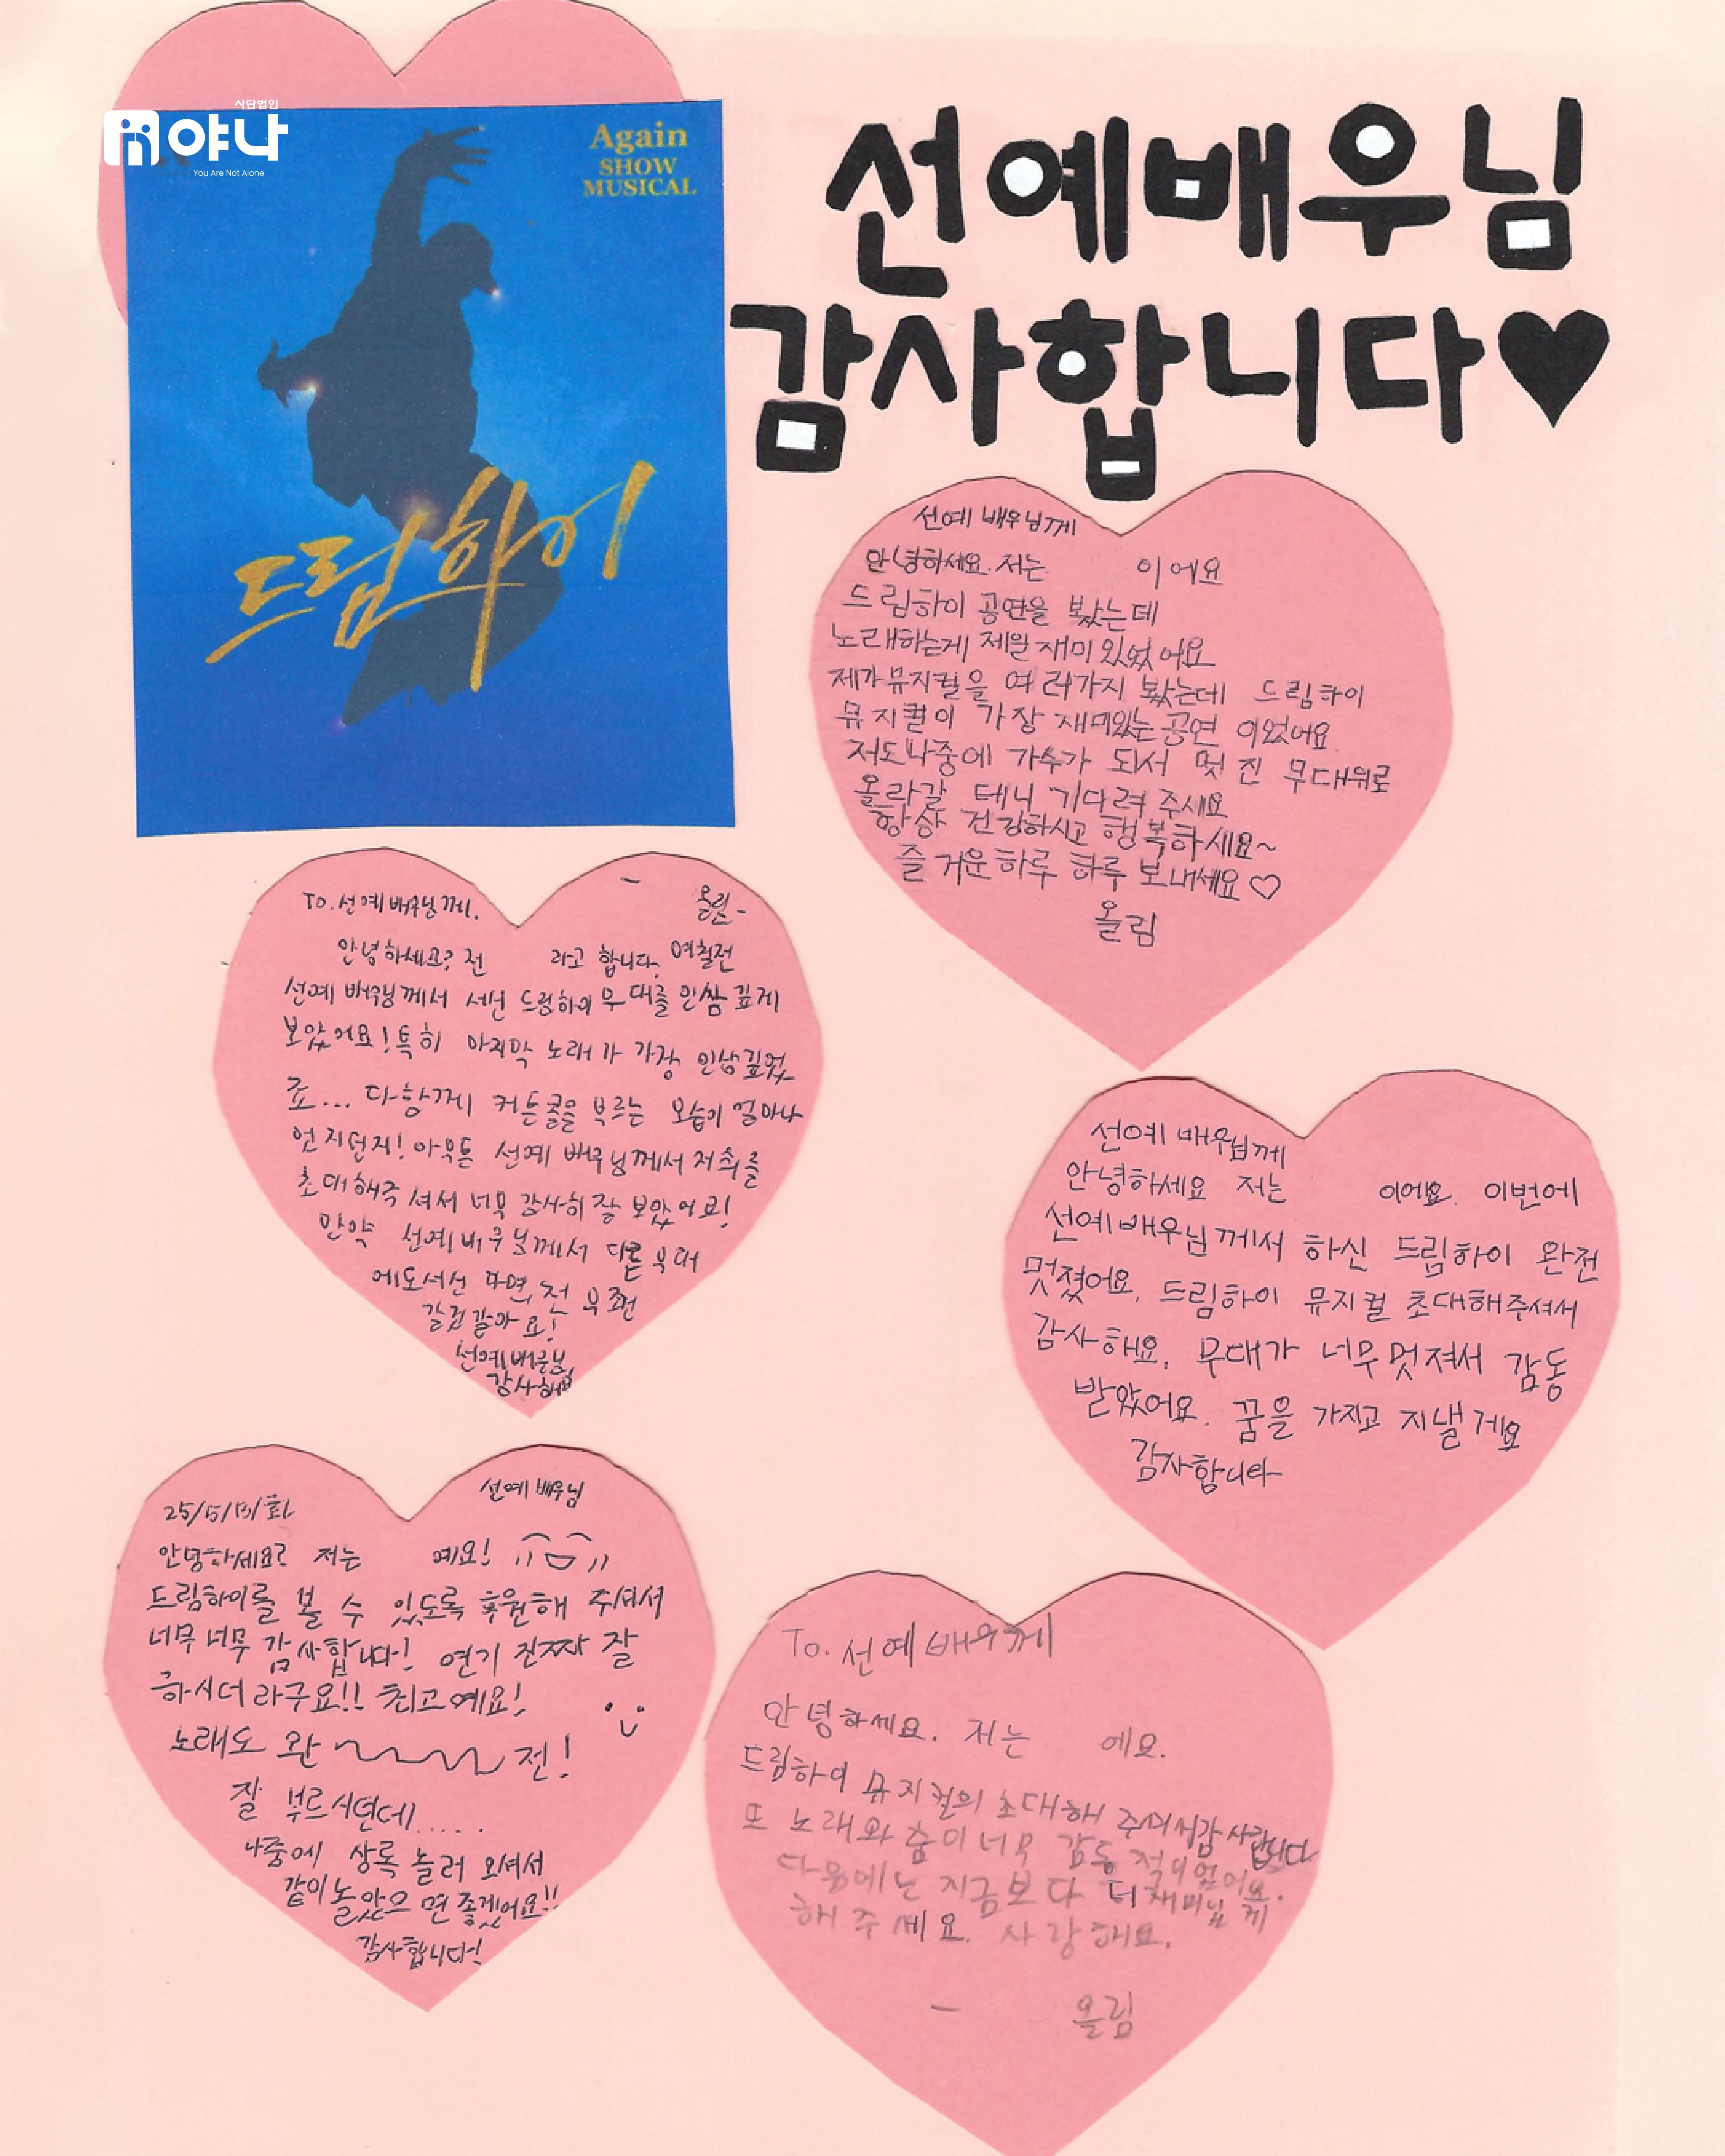 사단법인
야나
You Are Not Alone
Again
SHOW
MUSICAL
드림하이
선예배우님
감사합니다♥
선예 배우님께
안녕하세요. 저는 이에요
드림하이 공연을 봤는데
노래하는게 제일 재미있었어요
제가 뮤지컬을 여러가지 봤는데 드림하이
뮤지컬이 가장 재미있는 공연 이었어요
저도 나중에 가수가 되서 멋진 무대위로
올라갈 테니 기다려 주세요
항상 건강하시고 행복하세요~
즐거운 하루 하루 보내세요♡
올림
To. 선예 배우님께.
- 올림-
안녕하세요? 전 라고 합니다. 며칠전
선예 배우님께서 서신 드림하이 무대를 인쌍 깊게
보았어요! 특히 마지막 노래가 가장 인상깊었
죠... 다함께 커튼콜을 부르는 모습이 얼마나
언지던지! 아무튼 선예 배우님께서 저희를
초대해주셔서 너무 감사히 잘 보았어요!
만약 선예 배우님께서 다른 무대
에도 서신다면, 전 무조건
갈것 같아요!
선예배우님
감사해요
선예 배우님께
안녕하세요 저는 이에요. 이번에
선예배우님께서 하신 드림하이 완전
멋졌어요. 드림하이 뮤지컬 초대해주셔서
감사해요. 무대가 너무 멋져서 감동
받았어요. 꿈을 가지고 지낼게요
감사합니다
선예 배우님
25/5/13/화
안녕하세요? 저는 예요!
드림하이를 볼 수 있도록 후원해 주셔서
너무 너무 감사합니다! 연기 진짜 잘
하시더라구요!! 최고예요!
노래도 완~~~전!
잘 부르시던데.....
나중에 상록 놀러 오셔서
같이 놀았으면 좋겠어요!!
감사합니다!
To. 선예배우께
안녕하세요. 저는 에요.
드림하이 뮤지컬의 초대해 주셔서 감사합니다
또 노래와 춤이 너무 감동적이었어요.
다음에는 지금보다 더 재미있게
해주세요. 사랑해요.
- 올림